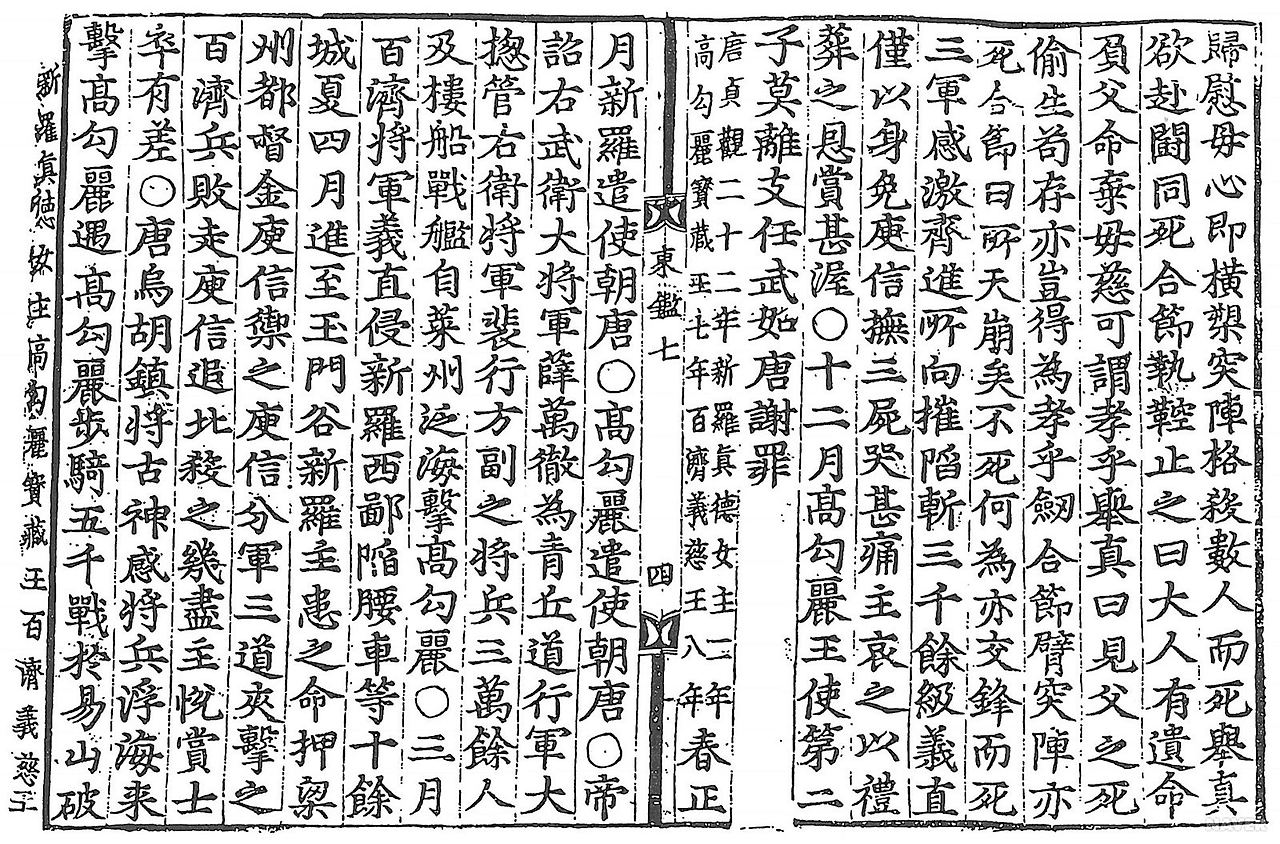 歸慰母心即横槊突陣格殺數人而死舉真
欲赴鬪同死合節執鞚止之曰大人有遺命
負父命棄母慈可謂孝乎舉真曰見父之死
偷生苟存亦豈得為孝乎劒合節臂突陣亦
死合節曰所天崩矣不死何為亦交鋒而死
三軍感激齊進所向摧陷斬三千餘級義直
僅以身免庾信撫三屍哭甚痛主哀之以禮
葬之恩賞甚渥〇十二月高勾麗王使第二
子莫離支任武如唐謝罪
唐貞觀二十二年新羅真德女主二年
高勾麗寶藏王七年百濟義慈王八年
春正
東鑑七 四
月新羅遣使朝唐〇高勾麗遣使朝唐〇帝
詔右武衛大將軍薛萬徹為青丘道行軍大
揔管右衛將軍裴行方副之將兵三萬餘人
及樓船戰艦自萊州泛海擊高勾麗〇三月
百濟將軍義直侵新羅西鄙陷腰車等十餘
城夏四月進至玉門谷新羅主患之命押梁
州都督金庾信禦之庾信分軍三道夾擊之
百濟兵敗走庾信追北殺之幾盡主恱賞士
卒有差〇唐烏胡鎮將古神感將兵浮海來
擊高勾麗遇高勾麗步騎五千戰於易山破
新羅真德女主高勾麗寶藏王百濟義慈王